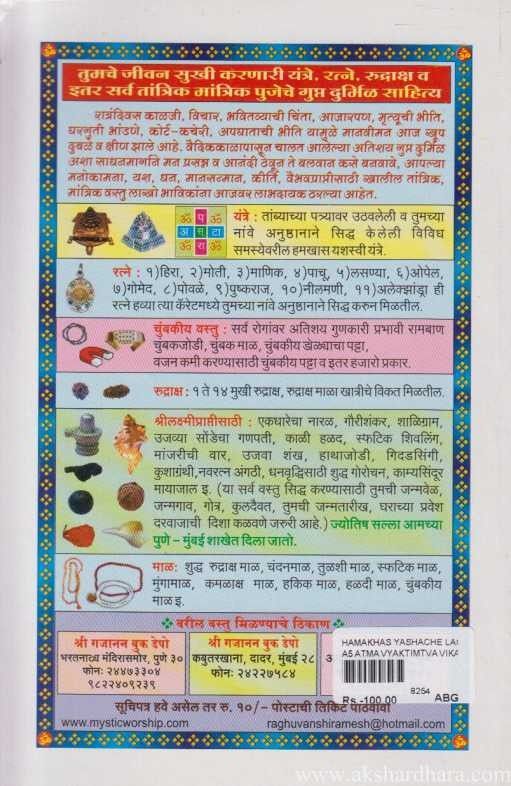 तुमचे जीवन सुखी करणारी यंत्रे, रत्ने, रुद्राक्ष व
इतर सर्व तांत्रिक मांत्रिक पुजेचे गुप्त दुर्मिळ साहित्य
रात्रंदिवस काळजी, विचार, भवितव्याची चिंता, आजारपण, मृत्यूची भीति,
घरगुती भांडणे, कोर्ट-कचेरी, अपघाताची भीति यामुळे मानवीमन आज खुप
दुबळे व क्षीण झाले आहे. वैदिककाळापासून चालत आलेल्या अतिशय गुप्त दुर्मिळ
अशा साधनमार्गाने मन प्रसन्न व आनंदी ठेवून ते बलवान कसे बनवावे, आपल्या
मनोकामना, यश, धन, मानसन्मान, कीर्ति, वैभवप्राप्तीसाठी खालील तांत्रिक,
मांत्रिक वस्तु लाखो भाविकांना आजवर लाभदायक ठरल्या आहेत.
ॐ प ॐ
अ स टा
ॐ रा ॐ
यंत्रे : तांब्याच्या पत्र्यावर उठवलेली व तुमच्या
नांवे अनुष्ठानाने सिद्ध केलेली विविध
समस्येवरील हमखास यशस्वी यंत्रे.
रत्ने : १)हिरा, २)मोती, ३)माणिक, ४)पाचू, ५)लसण्या, ६)ओपेल,
७)गोमेद, ८)पोवळे, ९)पुष्कराज, १०)नीलमणी, ११)अलेक्झांड्रा ही
रत्ने हव्या त्या कॅरेटमध्ये तुमच्या नांवे अनुष्ठानाने सिद्ध करुन मिळतील.
चुंबकीय वस्तु : सर्व रोगांवर अतिशय गुणकारी प्रभावी रामबाण
चुंबकजोडी, चुंबक माळ, चुंबकीय डोळ्याचा पट्टा,
वजन कमी करण्यासाठी चुंबकीय पट्टा व इतर हजारो प्रकार.
रुद्राक्ष : १ ते १४ मुखी रुद्राक्ष, रुद्राक्ष माळा खात्रीचे विकत मिळतील.
श्रीलक्ष्मीप्राप्तीसाठी : एकधारेचा नारळ, गौरीशंकर, शाळिग्राम,
उजव्या सोंडेचा गणपती, काळी हळद, स्फटिक शिवलिंग,
मांजरीची वार, उजवा शंख, हाथाजोडी, गिदडसिंगी,
कुशाग्रंथी,नवरत्न अंगठी, धनवृद्धिसाठी शुद्ध गोरोचन, काम्यसिंदूर
मायाजाल इ. (या सर्व वस्तु सिद्ध करण्यासाठी तुमची जन्मवेळ,
जन्मगाव, गोत्र, कुलदैवत, तुमची जन्मतारीख, घराच्या प्रवेश
दरवाजाची दिशा कळवणे जरुरी आहे.) ज्योतिष सल्ला आमच्या
पुणे – मुंबई शाखेत दिला जातो.
माळ: शुद्ध रुद्राक्ष माळ, चंदनमाळ, तुळशी माळ, स्फटिक माळ,
मुंगामाळ, कमळाक्ष माळ, हकिक माळ, हळदी माळ, चुंबकीय
माळ इ.
वरील वस्तु मिळण्याचे ठिकाण
श्री गजानन बुक डेपो
भरतनाट्य मंदिरासमोर, पुणे ३०
फोनः २४४७३३०४
९८२२४०९२३९
श्री गजानन बुक डेपो
कबुतरखाना, दादर, मुंबई २८
फोनः २४२२७५८४
HAMAKHAS YASHACHE LA
A5 ATMA VYAKTIMTVA VIKA
8254
Rs.-100.00 ABG
सूचिपत्र हवे असेल तर रु. १०/– पोस्टाची तिकिटे पाठवावी
www.mysticworship.com
raghuvanshiramesh@hotmail.com
www.akshardhara.com